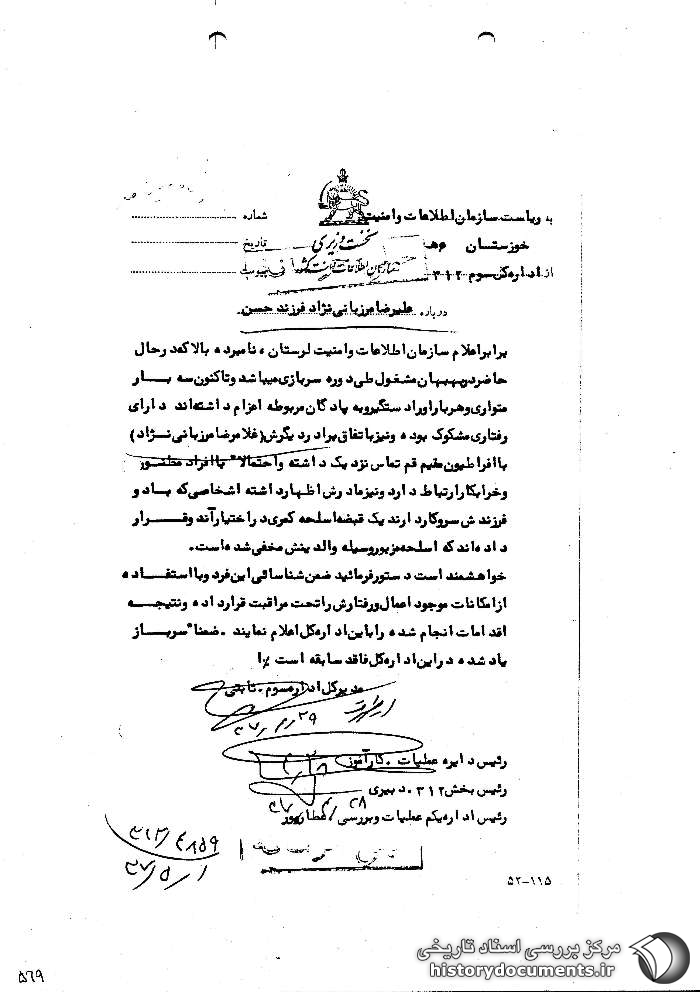 به ریاست سازمان اطلاعات و امنیت شماره
نخست وزیری
خوزستان هـ تاریخ
سازمان اطلاعات و امنیت کشور
از اداره کل سوم ۳۱۲ پیوست
درباره علیرضا مرزبانی نژاد فرزند حسن
برابر اعلام سازمان اطلاعات و امنیت لرستان ، نامبرده بالا که در حال
حاضر در بهبهان مشغول طی دوره سربازی میباشد و تاکنون سه بار
متواری و هر بار او را دستگیر و به پادگان مربوطه اعزام داشته‌اند دارای
رفتاری مشکوک بوده و نیز باتفاق برادر دیگرش (غلامرضا مرزبانی نژاد)
با افراطیون مقیم قم تماس نزدیک داشته و احتمالا" با افراد منظور
و خرابکار ارتباط دارد و نیز مادرش اظهار داشته اشخاصی که با او و
فرزندش سروکار دارند یک قبضه اسلحه کمری در اختیار آنها و قرار
داده‌اند که اسلحه مزبور وسیله والدینش مخفی شده است.
خواهشمند است دستور فرمائید ضمن شناسائی این فرد و با استفاده
از امکانات موجود اعمال و رفتارش را تحت مراقبت قرار داده و نتیجه
اقدامات انجام شده را باین اداره کل اعلام نمایند . ضمنا" سرباز
یاد شده در این اداره کل فاقد سابقه است
مدیر کل اداره سوم . ثابتی
۳۷/۴/۲۹
رئیس دایره عملیات . کارآموز
رئیس بخش ۳۱۲ . دبیری
رئیس اداره یکم عملیات و بررسی / عطارپور
۲۸
۳۱۲/۴۸۵۹
۳۷/۵/۱
۵۲-۱۱۵
مرکز بررسی اسناد تاریخی
historydocuments.ir
۵۶۹